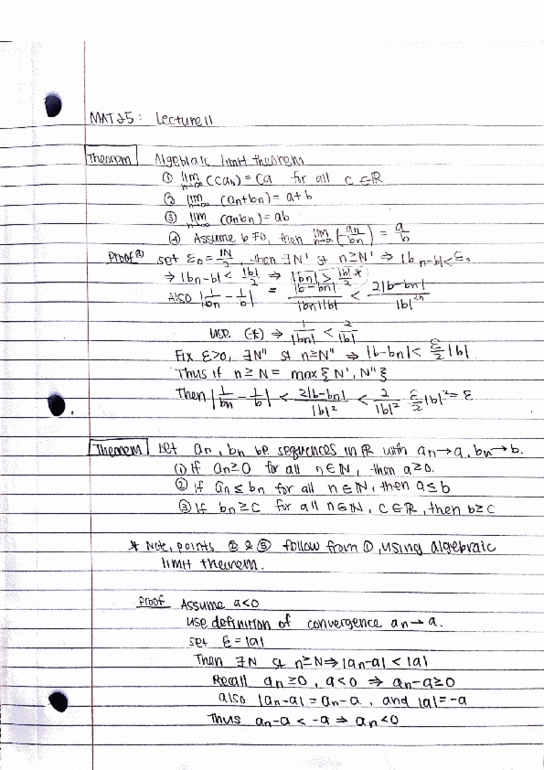 MAT 25: Lecture 11
Theorem Algebraic limit theorem
① lim n→∞ (can) = ca for all c ∈ ℝ
② lim n→∞ (an+bn) = a+b
③ lim n→∞ (anbn) = ab
④ Assume b≠0, then lim n→∞ (an/bn) = a/b
Proof④ set ε₀ = |b|/2, then ∃N' st n≥N' ⇒ |bn-b|<ε₀
⇒ |bn-b| < |b|/2 ⇒ |bn| > |b|/2 *
Also |1/bn - 1/b| = |b-bn|/|bn||b| < 2|b-bn|/|b|²
use (*) ⇒ 1/|bn| < 2/|b|
Fix ε>0, ∃N" st n≥N" ⇒ |b-bn| < ε/2 |b|
Thus if n ≥ N = max{N', N"}
Then |1/bn - 1/b| < 2|b-bn|/|b|² < 2/|b|² ε/2 |b|² = ε
Theorem Let an, bn be sequences in ℝ with an→a, bn→b.
① If an≥0 for all n∈ℕ, then a≥0.
② If an≤bn for all n∈ℕ, then a≤b
③ If bn≥c for all n∈ℕ, c∈ℝ, then b≥c
* Note, points ② & ③ follow from ①, using algebraic
limit theorem.
Proof Assume a<0
use definition of convergence an→a.
set ε=|a|
Then ∃N st n≥N ⇒ |an-a| < |a|
Recall an≥0, a<0 ⇒ an-a≥0
also |an-a| = an-a, and |a|=-a
Thus an-a < -a ⇒ an<0